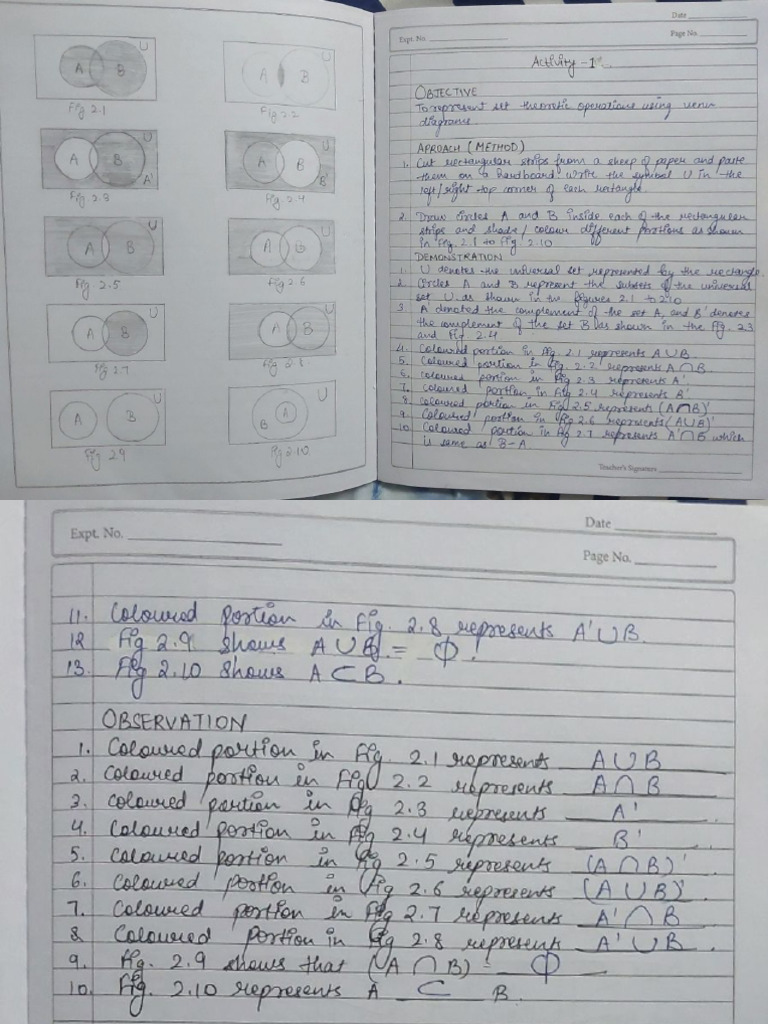 U
A B
Fig 2.1
U
A B
Fig 2.2
U
A B
A'
Fig 2.3
U
A B
B'
Fig 2.4
U
A B
Fig 2.5
U
A B
Fig 2.6
U
A B
Fig 2.7
U
A B
Fig 2.8
U
A B
Fig 2.9
U
A
B
Fig 2.10
Date
Expt. No. Page No.
Activity - 1
OBJECTIVE
To represent set theoretic operations using venn
diagrams.
APROACH (METHOD)
1. Cut rectangular strips from a sheep of paper and paste
them on a hardboard. Write the symbol U in the
left/right top corner of each rectangle.
2. Draw circles A and B inside each of the rectangular
strips and shade / colour different portions as shown
in Fig. 2.1 to Fig. 2.10
DEMONSTRATION
1. U denotes the universal set represented by the rectangle.
2. Circles A and B represent the subsets of the universal
set U as shown in the figures 2.1 to 2.10
3. A' denoted the complement of the set A, and B' denotes
the complement of the set B as shown in the Fig. 2.3
and Fig. 2.4
4. Coloured portion in fig. 2.1 represents A∪B.
5. Coloured portion in fig. 2.2 represents A∩B.
6. coloured portion in Fig 2.3 represents A'
7. coloured portion in Fig 2.4 represents B'
8. coloured portion in Fig 2.5 represent (A∩B)'
9. Coloured portion in Fig 2.6 represents (A∪B)'
10. Coloured portion in fig 2.7 represents A'∩B which
is same as B-A
Teacher's Signature
Date
Expt. No.
Page No.
11. Coloured portion in Fig. 2.8 represents A'∪B.
12 Fig 2.9 shows A∪B = Φ.
13. Fig 2.10 shows A⊂B.
OBSERVATION
1. Coloured portion in Fig. 2.1 represents A∪B
2. Coloured portion in Fig 2.2 represents A∩B
3. coloured portion in Fig 2.3 represents A'.
4. Coloured portion in Fig 2.4 represents B'.
5. Coloured portion in Fig 2.5 represents (A∩B)'
6. Coloured portion in Fig 2.6 represents (A∪B)'.
7. Coloured portion in Fig 2.7 represents A'∩B
8 Coloured portion in Fig 2.8 represents A'∪B.
9. Fig. 2.9 shows that (A∩B) = Φ
10. Fig. 2.10 represents A ⊂ B.